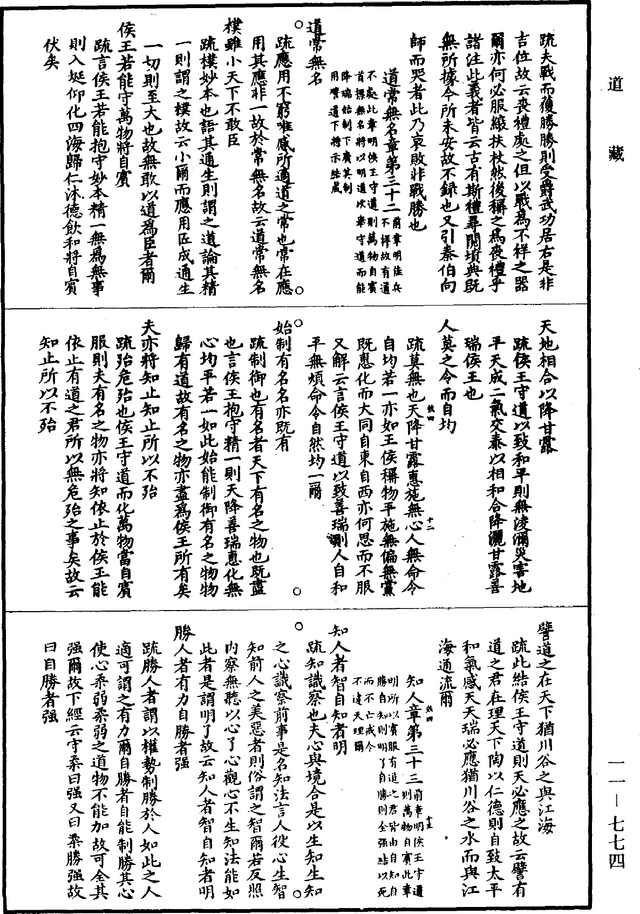 道藏
疏夫戰而獲勝勝則受爵武功居右是非
吉位故云喪禮處之但以戰為不祥之器
爾亦何必服縗扶杖然後稱之為喪禮乎
諸注此義者皆云古有斯禮尋閱墳典既
無所據今所未安故不錄也又引秦伯向
師而哭者此乃哀敗非戰勝也
道常無名章第三十二
前章明佳兵
不祥故有道
不處此章明侯王守道則萬物自賓
首標無名將以明道次舉守道而能
降瑞始制下廣其制
用譬道下將示結成
道常無名
疏應用不窮唯感所適道之常也常在應
用其應非一故於常無名故云道常無名
樸雖小天下不敢臣
疏樸妙本也語其通生則謂之道論其精
一則謂之樸故云小爾而應用匠成通生
一切則至大也故無敢以道為臣者爾
侯王若能守萬物將自賓
疏言侯王若能抱守妙本精一無為無事
則入埏仰化四海歸仁沐德飲和將自賓
伏矣
天地相合以降甘露
疏侯王守道以致和平則無淩瀰災害地
平天成二氣交泰以相和合降灑甘露善
瑞侯王也
人莫之令而自均
疏莫無也天降甘露惠施無心人無命令
自均若一亦如王侯稱物平施無偏無黨
既惠化而大同自東自西亦何思而不服
又解云言侯王守道以致善瑞則人自和
平無煩命令自然均一爾
始制有名名亦既有
疏制御也有名者天下有名之物也既盡
也言侯王抱守精一則天降善瑞惠化無
心均平若一如此始能制御有名之物物
歸有道故有名之物亦盡為侯王所有矣
夫亦將知止知止所以不殆
疏殆危殆也侯王守道而化萬物當自賓
服則夫有名之物亦將知依止於侯王能
依止有道之君所以無危殆之事矣故云
知止所以不殆
譬道之在天下猶川谷之與江海
疏此結侯王守道則天必應之故云譬有
道之君在理天下陶以仁德則自致太平
和氣感天天瑞必應猶川谷之水而與江
海通流爾
知人章第三十三
前章明侯王守道
則萬物自賓此章
明所以賓服有道之君皆由自知自
勝自知則明了自勝則全强結以死
而不亡戒令
不違天理爾
知人者智自知者明
疏知識察也夫心與境合是以生知生知
之心識察前事是名知法言人役心生智
知前人之美惡者則俗謂之智爾若反照
內察無聽以心了心觀心不生知法能如
此者是謂明了故云知人者智自知者明
勝人者有力自勝者强
疏勝人者謂以權勢制勝於人如此之人
適可謂之有力爾自勝者自能制勝其心
使心柔弱柔弱之道物不能加故可全其
强爾故下經云守柔曰强又曰柔勝强故
曰自勝者强
一一—七七四